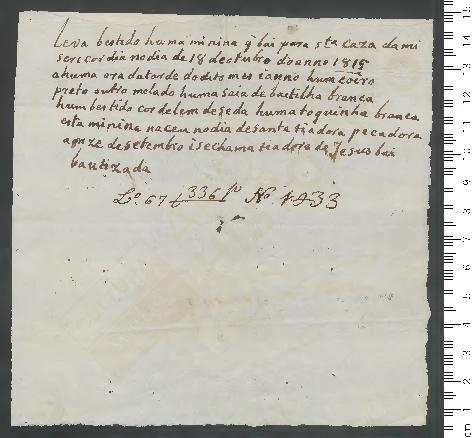 Leva bestido huma minina q̃ bai para sta caza da mi
sericordia no dia de 18 de outubro do anno 1815
a huma ora da tarde do dito mes i anno hum coeiro
preto outro melado huma saia de baetilha branca
hum bestido cor de lem de seda huma toquinha branca
esta minina naceu no dia de santa tiadora pecadora
aonze de setembro i se chama tiadora de Jesus bai
bautizada
Lo. 67 f 336 No. 1433